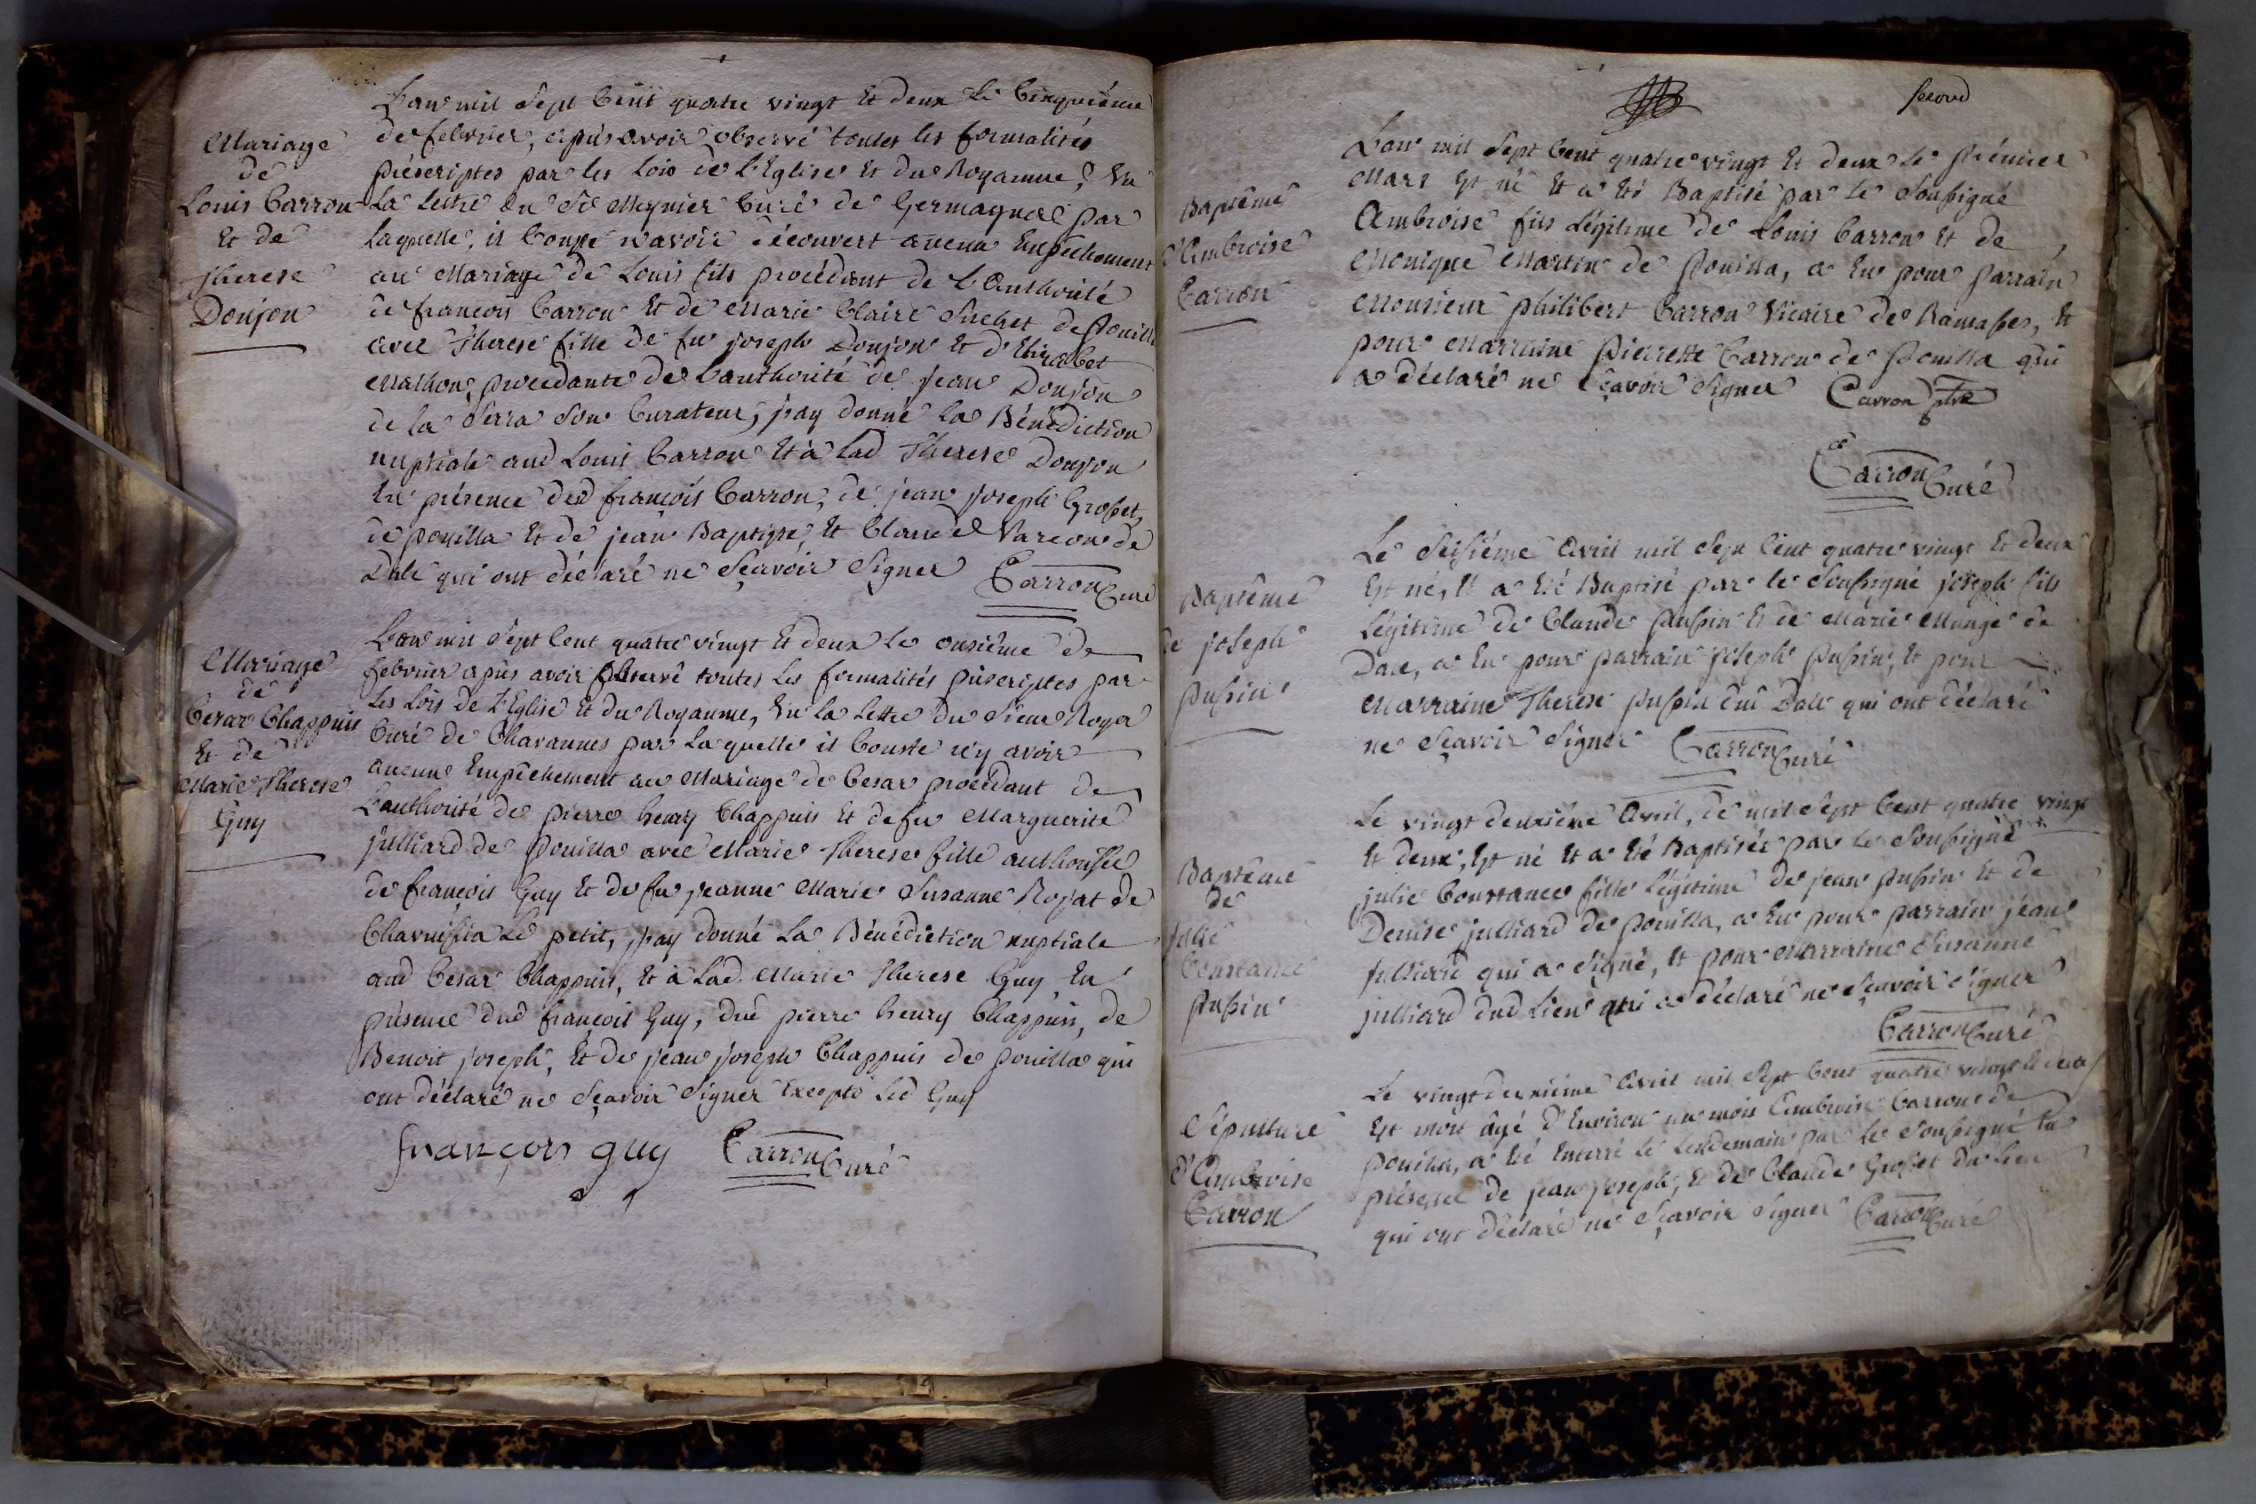 Mariage
de
Louis Carron
Et de
Therese
Donjon
L'an mil Sept Cent quatre vingt Et deux Le Cinquiéme
de febvrier, après avoir observé toutes les formalités
préscriptes par les Lois de L'Eglise Et du Royaume, Vu
La Lettre du Sr Meynier Curé de Germagnat par
laquelle, il Conste n'avoir découvert aucun Empéchement
au Mariage de Louis fils procédant de L'Authorité
de françois Carron Et de Marie Claire Suchet de Pouilla
avec Therese fille de fu joseph Donjon Et d'Elizabet
Mathon, procédante de L'authorité de jean Donjon
de la Serra Son Curateur, j'ay donné La Bénédiction
nuptiale aud Louis Carron Et à Lad Therese Donjon
En présence dud françois Carron, de jean joseph Grosset,
de pouilla Et de jean Baptiste, Et Claude Vareon de
Dale qui ont déclaré ne Sçavoir Signer Carron Curé
Mariage
de
Cesar Chappuis
Et de
Marie Therese
Guy
L'an mil Sept Cent quatre vingt Et deux Le onsiéme de
febvrier après avoir observé toutes Les formalités préscriptes par
Les Lois de L'Eglise Et du Royaume, Vu La Lettre du Sieur Royer
Curé de Chavannes par Laquelle il Conste n'y avoir
aucun Empéchement au Mariage de Cesar procédant de
L'authorité de pierre henry Chappuis Et de fu Marguerite
julliard de Pouilla avec Marie Therese fille authorisée
de françois Guy Et de fu jeanne Marie Susanne Rojat de
Chavuissia Le petit, j'ay donné La Bénédiction nuptiale
aud Cesar Chappuis, Et à Lad. Marie Therese Guy En
présence dud françois Guy, dud pierre henry Chappuis, de
Benoit joseph, Et de jean joseph Chappuis de pouilla qui
ont déclaré ne Sçavoir Signer Excepté Led Guy
françois guy Carron Curé
second
Baptême
d'Ambroise
Carron
L'an mil Sept Cent quatre vingt Et deux Le Prémier
Mars Est né Et a Eté Baptisé par Le Soussigné
Ambroise fils Légitime de Louis Carron Et de
Monique Martin de Pouilla, a Eu pour Parrain
Monsieur philibert Carron Vicaire de Ramasses, Et
pour Marraine Pierrette Carron de Pouilla qui
a déclaré ne Sçavoir Signer Carron ptre
Carron Curé
Baptême
de joseph
Pussin
Le Seisiéme Avril mil Sept Cent quatre vingt Et deux
Est né, Et a Eté Baptisé par le Soussigné joseph fils
Légitime de Claude Pussin Et de Marie Monge de
Dale, a Eu pour parrain joseph Pussin, Et pour
Marraine Therese Pussin dud Dale qui ont déclaré
ne Sçavoir Signer Carron Curé
Baptême
de
julie
Constance
Pussin
Le vingt deuxiéme Avril, de mil Sept Cent quatre vingt
Et deux, Est né Et a Eté Baptisée par Le Soussigné
julie Constance fille Légitime de jean Pussin Et de
Denise julliard de Pouilla, a Eu pour parrain jean
julliard qui a Signé, Et pour Marraine Susanne
julliard dud Lieu qui a déclaré ne Sçavoir Signer
Carron Curé
Sépulture
d'Ambroise
Carron
Le vingt deuxiéme Avril mil Sept Cent quatre vingt Et deux
Est mort âgé d'Environ un mois Ambroise Carron de
Pouilla, a Eté Enterré Le Lendemain par Le Soussigné En
présence de jean joseph, Et de Claude Grosset du Lieu
qui ont déclaré ne Sçavoir Signer Carron Curé